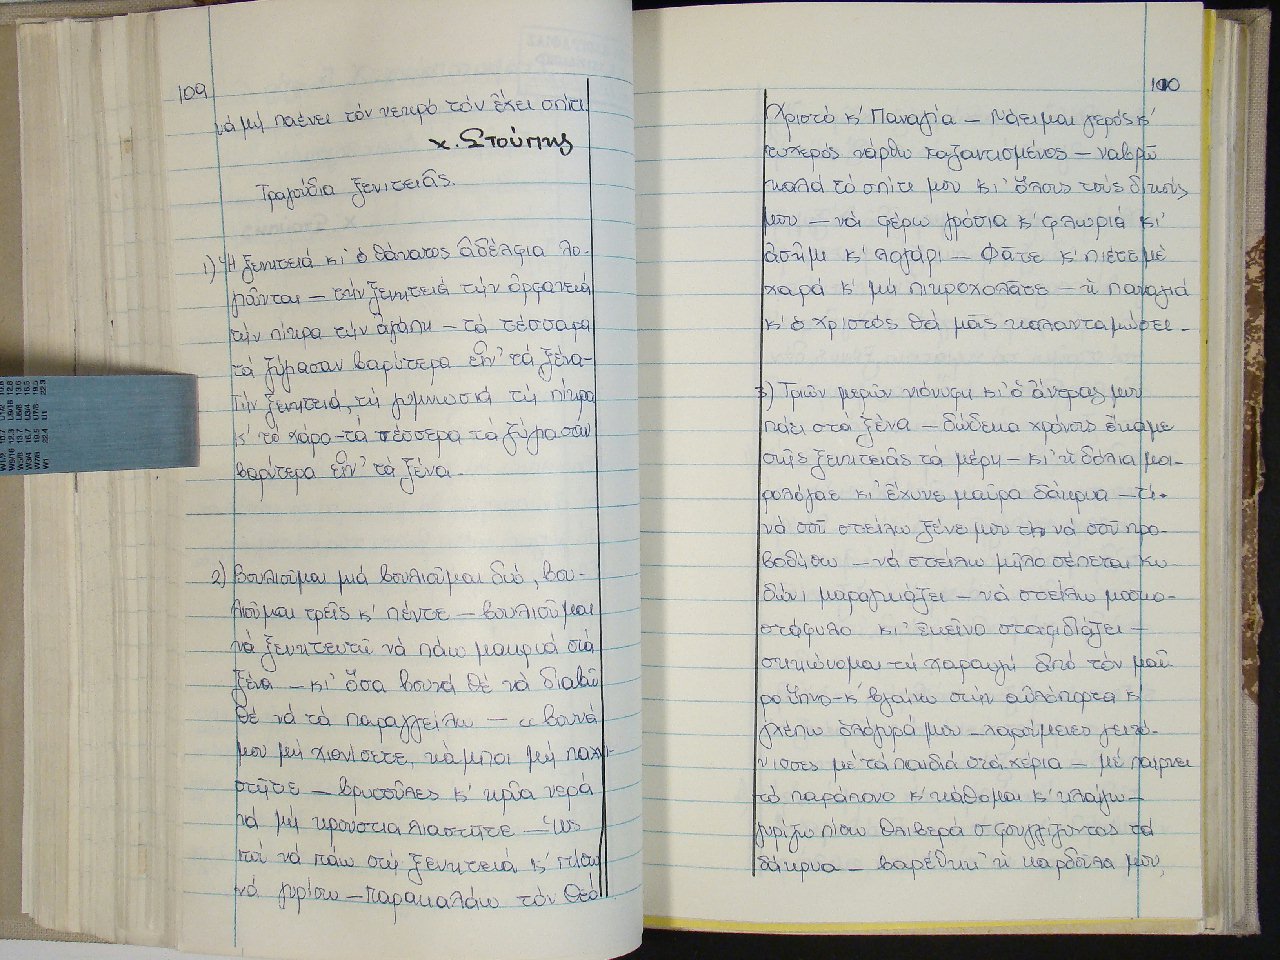 109
νά μή παένει τόν νεκρό τόν ἔχει σπίτι
Χ. Στούπης
Τραγούδια ξενιτειᾶς.
1) Ἡ ξενητειά κι' ὁ θάνατος ἀδέλφια λο-
γᾶνται — τήν ξενητειά τήν ὀρφανειά
τήν πίκρα τήν ἀγάπη — τά τέσσαρα
τά ζύγιασαν βαρύτερα εἶν' τά ξένα-
Τήν ξενητειά, τή γύμνωσιά τή πίκρα
κ' τό χάρο-τά τέσσερα τά ζύγιασαν
βαρύτερα εἶν' τά ξένα.
2) Βουλιοῦμαι μιά βουλιοῦμαι διό, βου-
λιοῦμαι τρεῖς κ' πέντε — βουλιοῦμαι
νά ξενητευτῶ νά πάω μακρυά στά
ξένα — κι' ὅσα βουνά θέ νά διαβῶ
θέ νά τά παραγγείλω — "βουνά
μου μή χιονίσετε, κάμποι μή παχνι-
στῆτε — βρυσοῦλες κ' κρῦα νερά
νά μή κρουσταλιαστῆτε — Ὥς
ποῦ νά πάω στή ξενητειά κ' πίσω
νά γυρίσω — Παρακαλάω τόν Θεό
110
Χριστό κ' Παναγία — Νάειμαι γερός κ'
τυχερός νάρθω καζαντισμένος — ναβρῶ
καλά τό σπίτι μου κι' ὅλους τούς δικούς
μου — νά φέρω γρόσια κ' φλωριά κι'
ἀσήμι κ' λογάρι — Φᾶτε κ' πιέτε μέ
χαρά κ' μή πικροχολᾶτε — ἡ παναγιά
κ' ὁ χριστός θά μᾶς καλανταμώσει.
3) Τριῶν μερῶν νιόνυφη κι' ὁ ἄντρας μου
πάει στά ξένα — δώδεκα χρόνους ἔκαμε
στῆς ξενητειᾶς τά μέρη — κι' ἡ δόλια μοι-
ρολόγαε κι' ἔχυνε μαῦρα δάκρυα — τί
νά σοῦ στείλω ξένε μου νά σοῦ προ-
βοδήσω — νά στείλω μῆλο σέπεται κυ
δώνι μαραγκιάζει — νά στείλω μοσκο-
στάφυλο κι' ἐκεῖνο σταφιδιάζει —
σηκώνομαι τή χαραυγή ἀπό τόν μαῦ
ρο ὕπνο-κ' βγαίνω στήν αὐλόπορτα κ'
βλέπω ὁλόγυρά μου — γειτό-
νισσες μέ τά παιδιά στά χέρια — μέ παίρνει
τό παράπονο κ' κάθομαι κ' κλαίγω —
γυρίζω πίσω θλιβερά σφουγγίζοντας τά
δάκρυα — βαρέθηκ' ἡ καρδούλα μου,